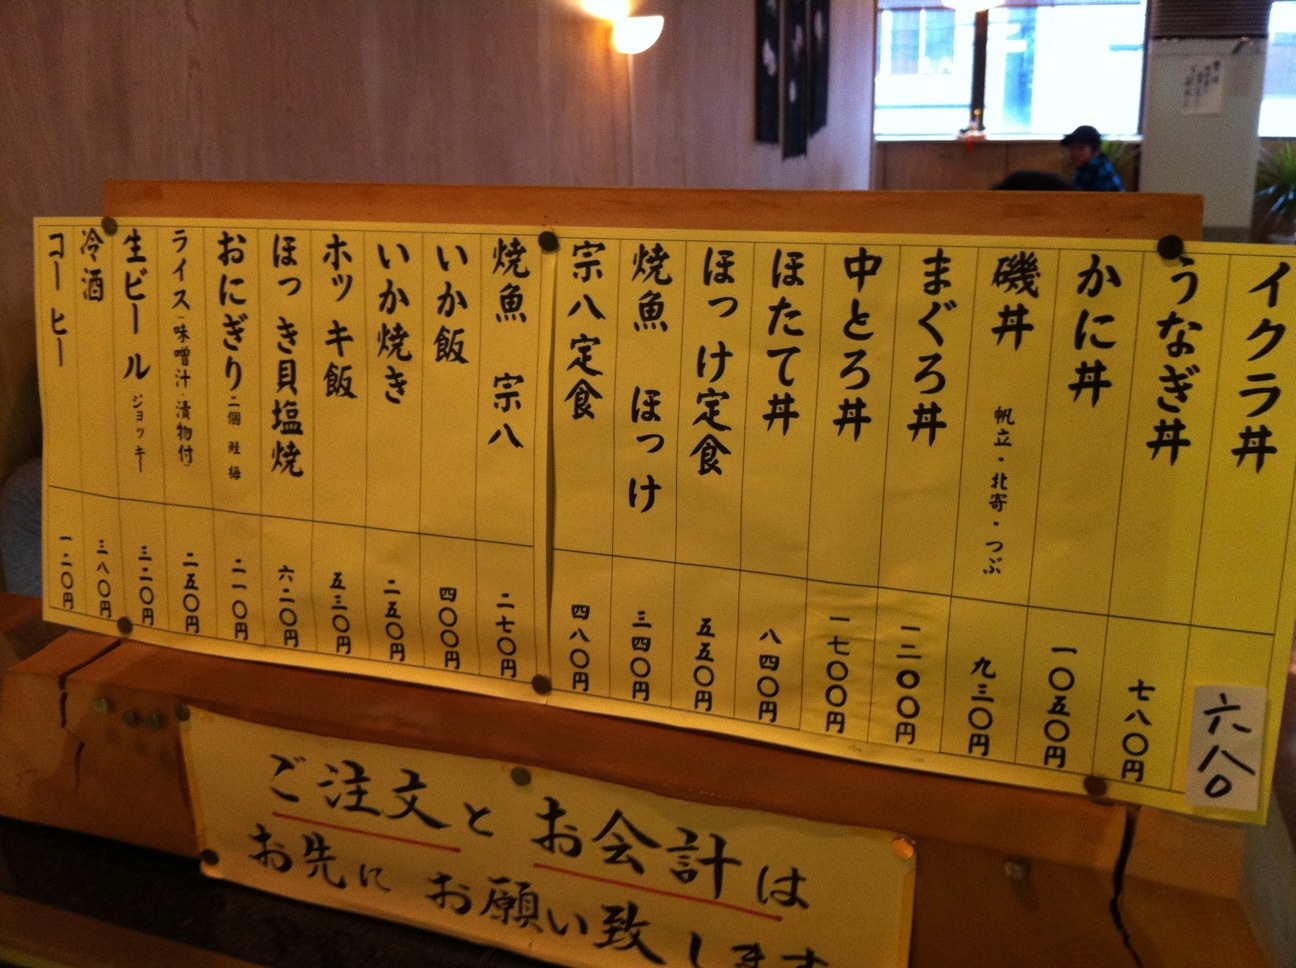 イクラ丼 六八〇
うなぎ丼 七八〇円
かに丼 一〇五〇円
磯丼 帆立・北寄・つぶ 九三〇円
まぐろ丼 一二〇〇円
中とろ丼 一七〇〇円
ほたて丼 八四〇円
ほっけ定食 五五〇円
焼魚 ほっけ 三四〇円
宗八定食 四八〇円
焼魚 宗八 二七〇円
いか飯 四〇〇円
いか焼き 二五〇円
ホッキ飯 五三〇円
ほっき貝塩焼 六二〇円
おにぎり 二個 鮭 梅 二一〇円
ライス(味噌汁・漬物付) 二五〇円
生ビール ジョッキー 三二〇円
冷酒 三八〇円
コーヒー 一二〇円
ご注文とお会計は
お先にお願い致します